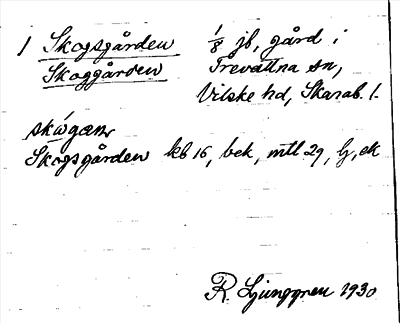 1 Skogsgården 1/8 jb, gård i
Skoggården Trevattna sn,
Vilske hd, Skarab. l.
skógæn
Skogsgården kb 16, bek, mtl 29, lj, ek
R. Ljunggren 1930